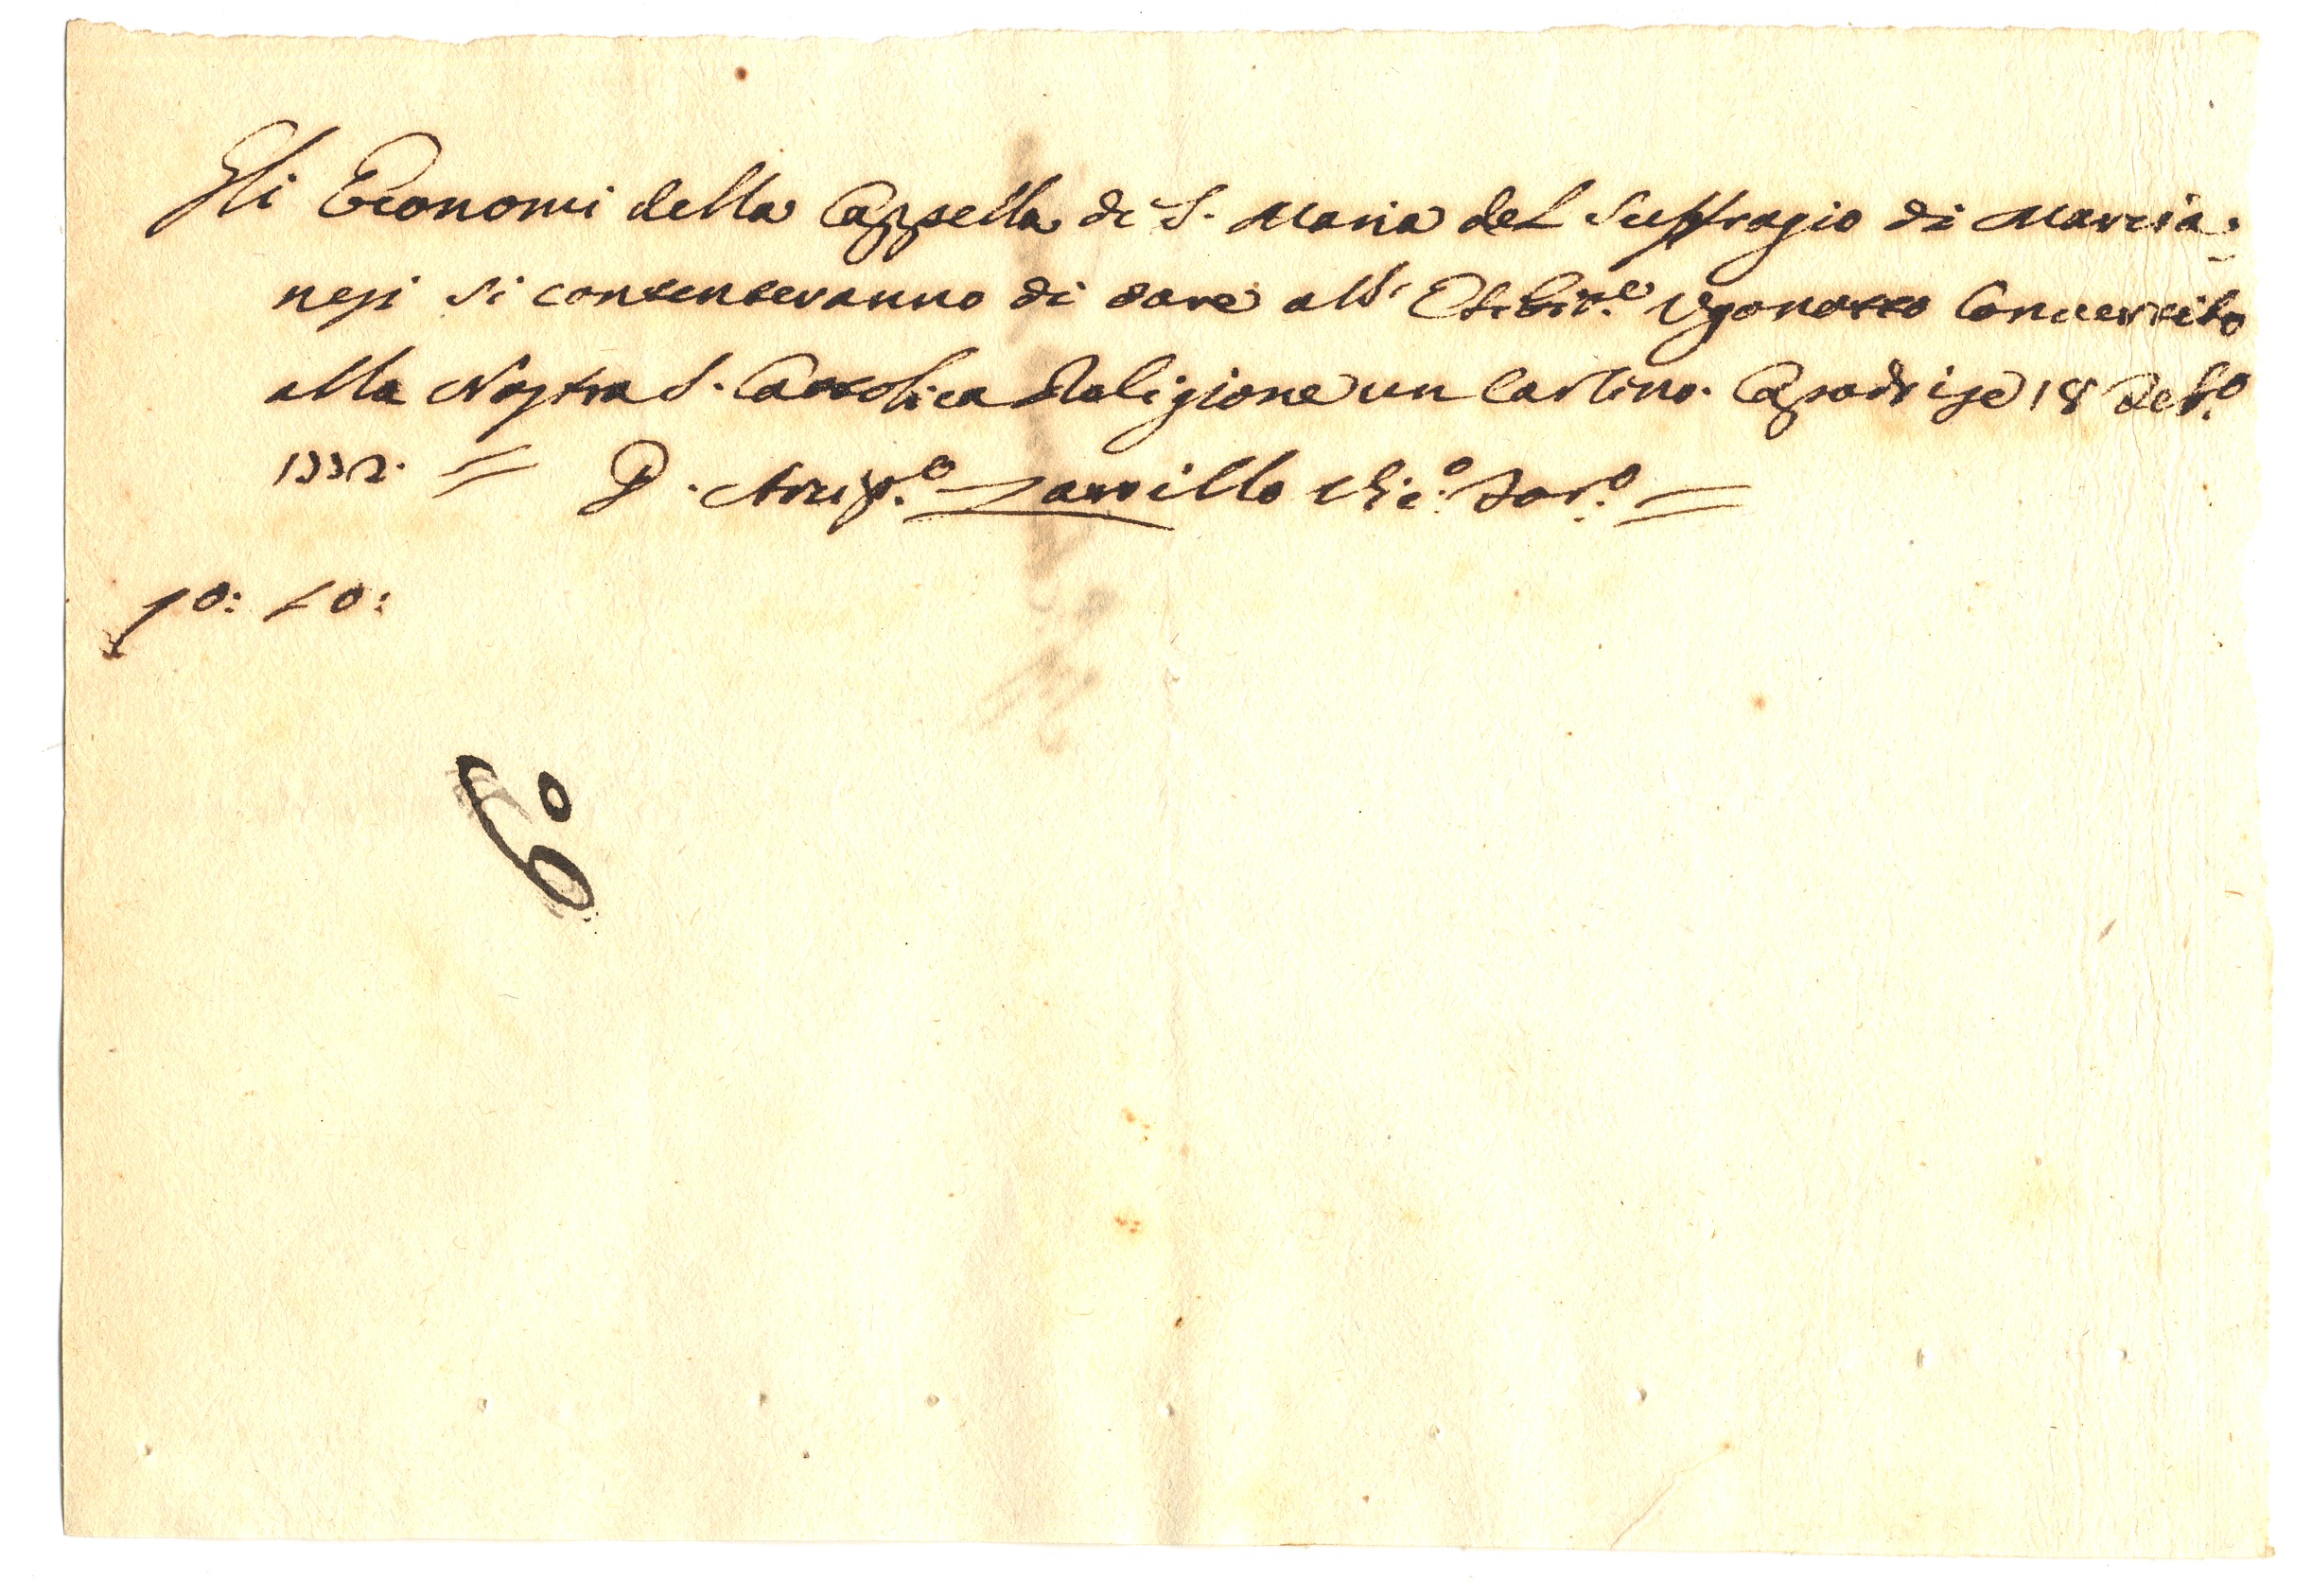 Gli Economi della Cappella di S. Maria del Suffragio di Marcia-
nesi si contenteranno di dare all' Esibit.e Ugonotto Convertito
alla Nostra S. Cattolica Religione un Carlino. Capodrise 18 Feb.o
1772. = D. Arcip.e Zarrillo Vic.o For.o =